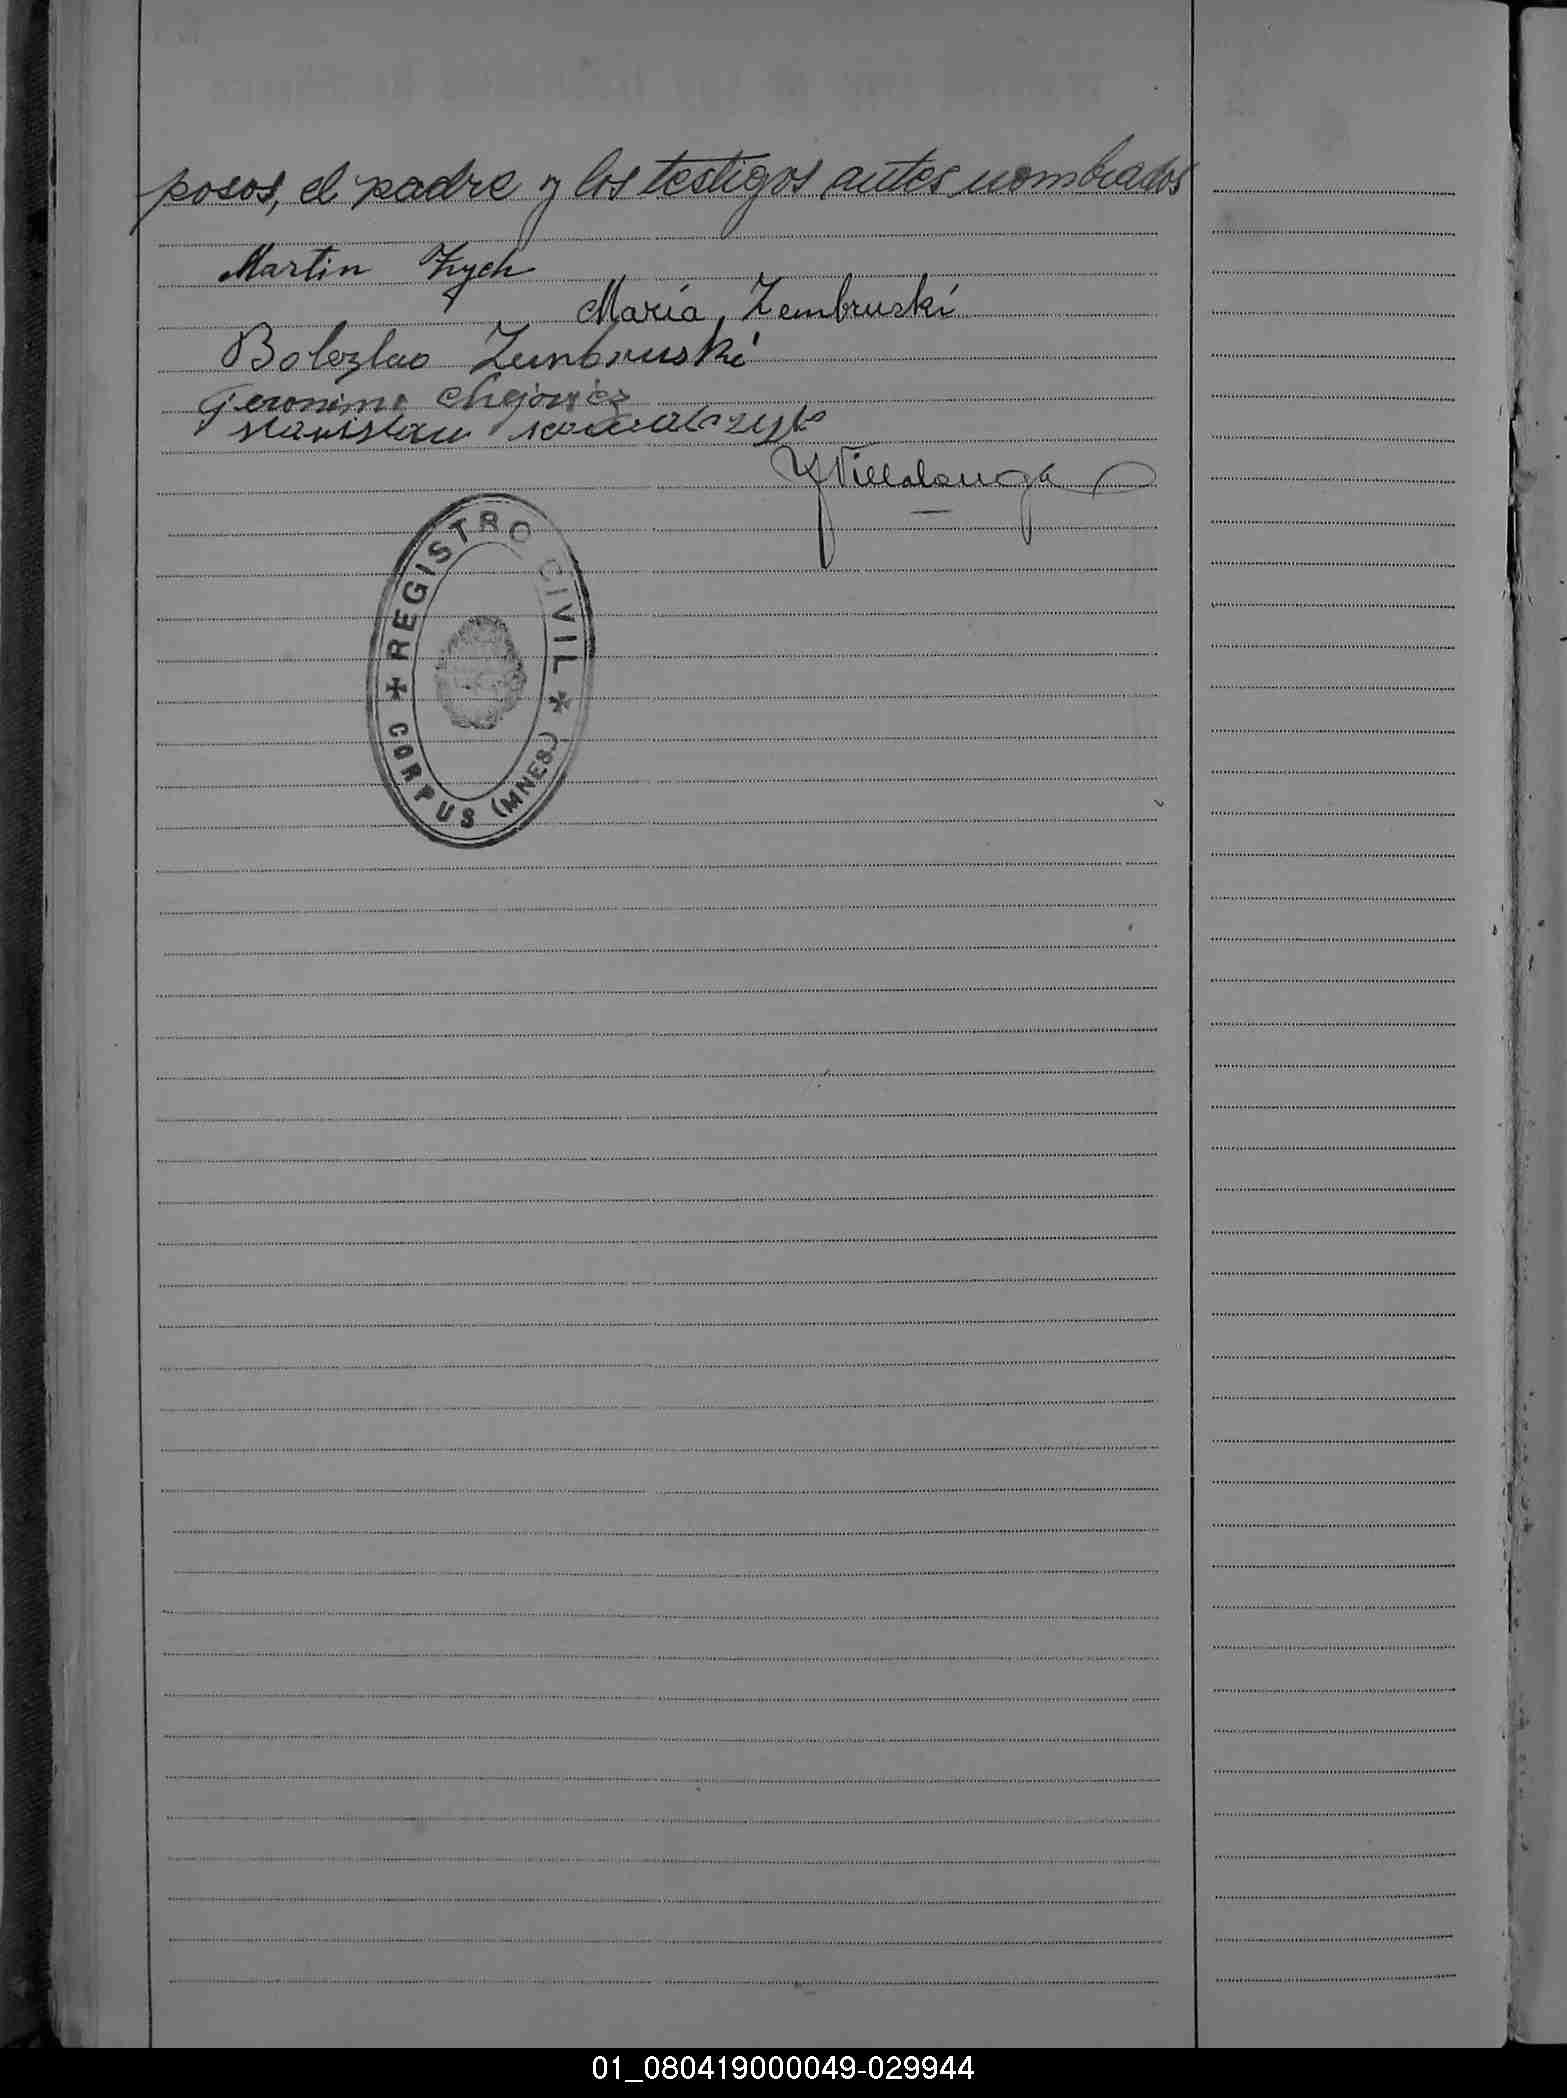 posos, el padre y los testigos antes nombrados
Martin Zych
Maria Zembruski
Boleslao Zembruski
Geronimo Chejovicz
Stanislaw Kowalczyk
Y Villalonga
REGISTRO CIVIL
CORPUS (MNES.)
01_080419000049-029944